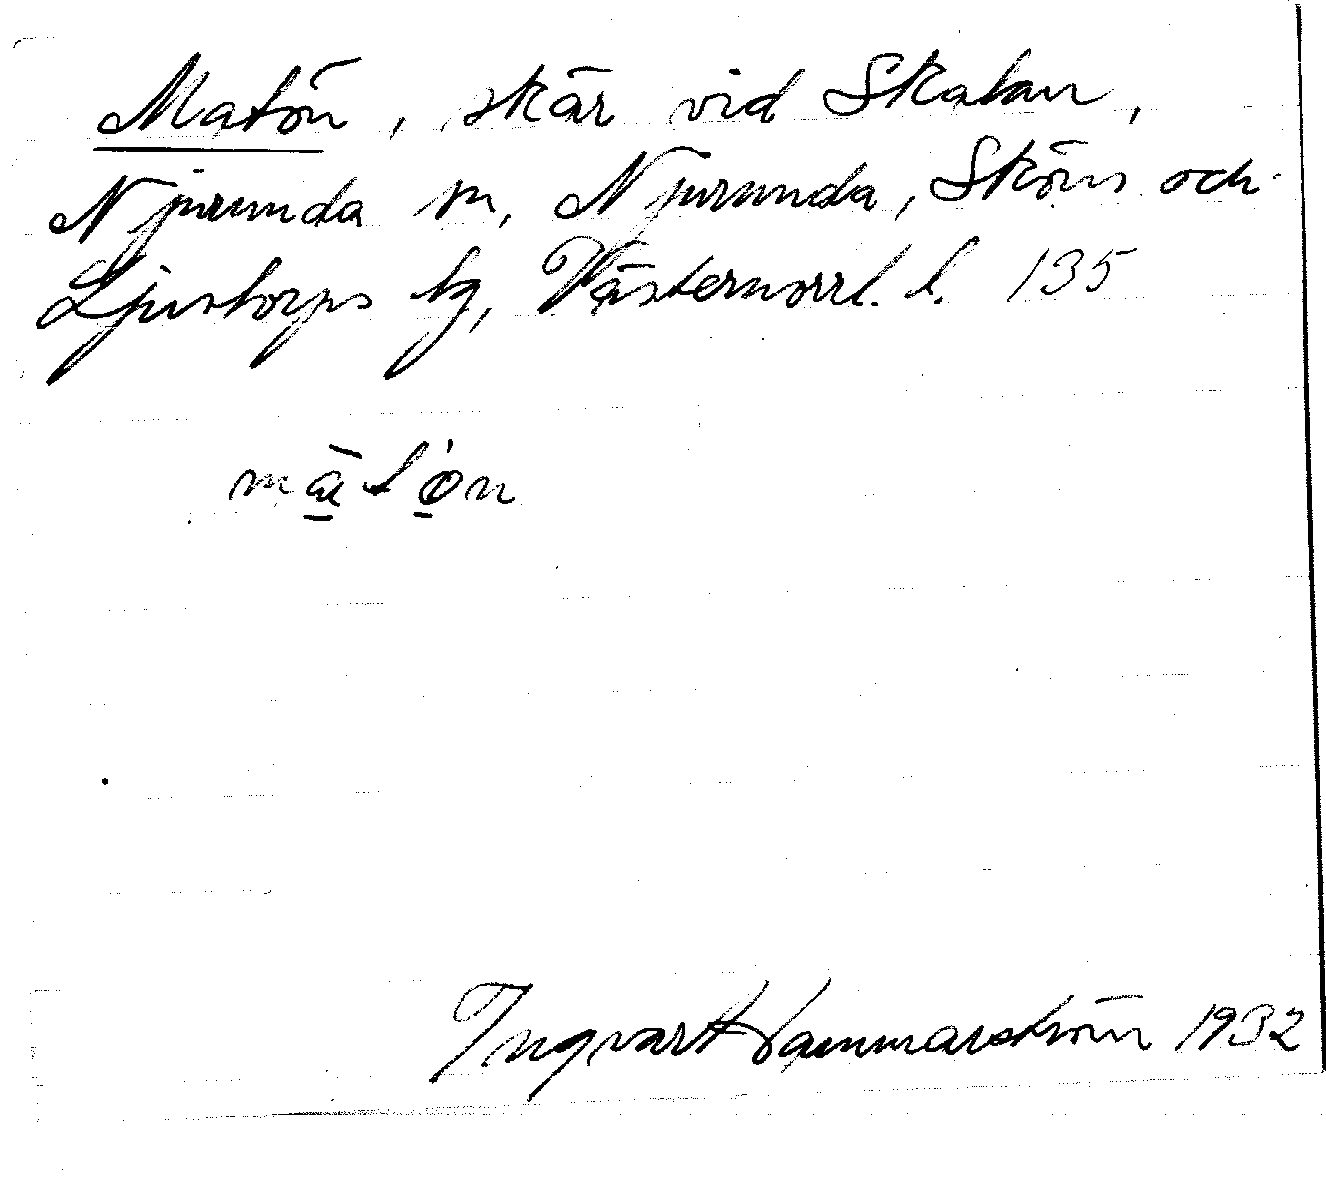 Matön, skär vid Skatan,
Njurunda sn, Njurunda, Sköns och
Ljustorps tg, Västernorrl. l. 135
Ingvart Hammarström 1932